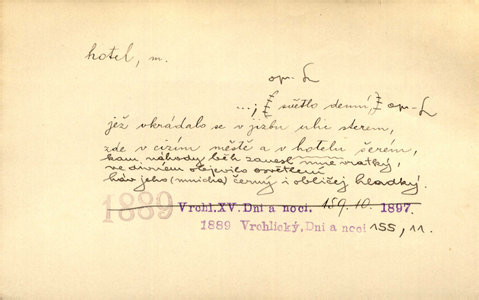 hotel, m.
op. L
...; světlo denní, op. L
jež vkrádalo se v jizbu uhlc sterem,
zde v cizím městě a v hotelu šerém,
kam náhody běh zanesl mne vratký,
ve divném objevilo osvětlení
háv jeho (mnicha) černý i obličej hladký.
1889 Vrchl. XV. Dni a noci. 189.10. 1897.
1889 Vrchlický, Dni a noci 155, 11.